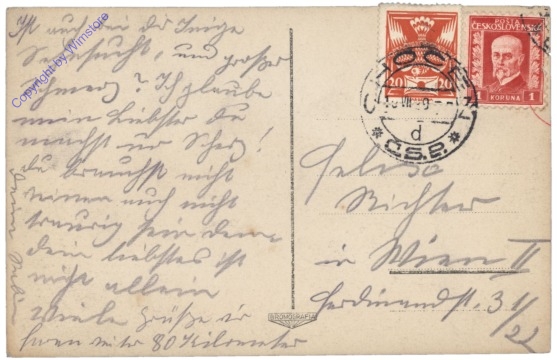 Ist auch bei dir Innige
Sehnsucht, und großer
Schmerz? Ich glaube
mein Liebster du
machst nur Scherz!
du brauchst nicht
weinen auch nicht
traurig sein denn
dein liebstes ist
nicht allein
Viele Grüße
80 Kilometer
Copyright by Wimstore
POŠTA
ČESKOSLOVENSKÁ
20 20
1 KORUNA 1
d
* Č.S.P. *
Richter
in Wien II
Ferdinandstr. 31/
22
BROMOGRAFIA